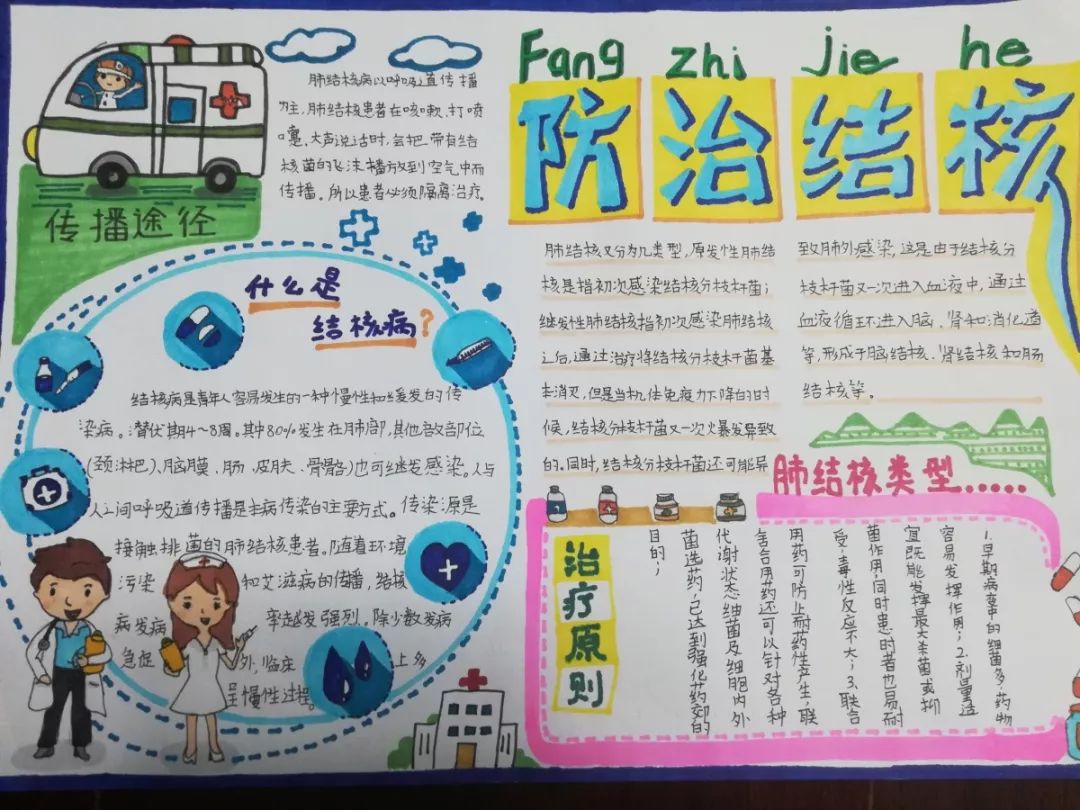 Fang zhi jie he
防治结核
肺结核病以呼吸道传播
为主,肺结核患者在咳嗽、打喷
嚏、大声说话时,会把带有结
核菌的飞沫播放到空气中而
传播。所以患者必须隔离治疗。
传播途径
什么是
结核病?
结核病是青年人容易发生的一种慢性和缓发的传
染病。潜伏期4~8周。其中80%发生在肺部,其他各部位
(颈淋巴、脑膜、肠、皮肤、骨骼)也可继发感染。人与
人之间呼吸道传播是本病传染的主要方式。传染源是
接触排菌的肺结核患者。随着环境
污染 和艾滋病的传播,结核
病发病 率越发强烈。除少数发病
急促 外,临床 上多
呈慢性过程。
肺结核又分为几类型,原发性肺结
核是指初次感染结核分枝杆菌;
继发性肺结核指初次感染肺结核
之后,通过治疗将结核分枝杆菌基
本消灭,但是当机体免疫力下降的时
候,结核分枝杆菌又一次火暴发导致
的。同时,结核分枝杆菌还可能导
致肺外感染,这是由于结核分
枝杆菌又一次进入血液中,通过
血液循环进入脑、肾和消化道
等,形成于脑结核、肾结核和肠
结核等。
肺结核类型......
治疗原则
1.早期病变中的细菌多,药物
容易发挥作用;2.剂量适
宜既能发挥最大杀菌或抑
菌作用,同时患的者也易耐
受,毒性反应不大;3.联合
用药可防止耐药性产生,联
合用药还可以针对各种
代谢状态细菌及细胞内外
菌选药,已达到强化药效的
目的;